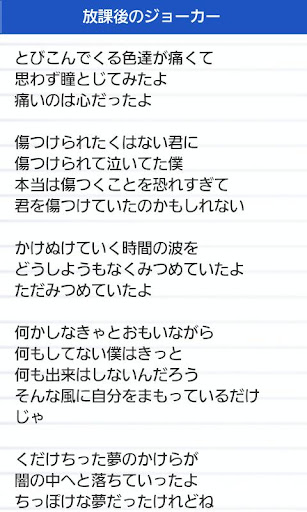 放課後のジョーカー
とびこんでくる色達が痛くて
思わず瞳とじてみたよ
痛いのは心だったよ
傷つけられたくはない君に
傷つけられて泣いてた僕
本当は傷つくことを恐れすぎて
君を傷つけていたのかもしれない
かけぬけていく時間の波を
どうしようもなくみつめていたよ
ただみつめていたよ
何かしなきゃとおもいながら
何もしてない僕はきっと
何も出来はしないんだろう
そんな風に自分をまもっているだけ
じゃ
くだけちった夢のかけらが
闇の中へと落ちていったよ
ちっぽけな夢だったけれどね